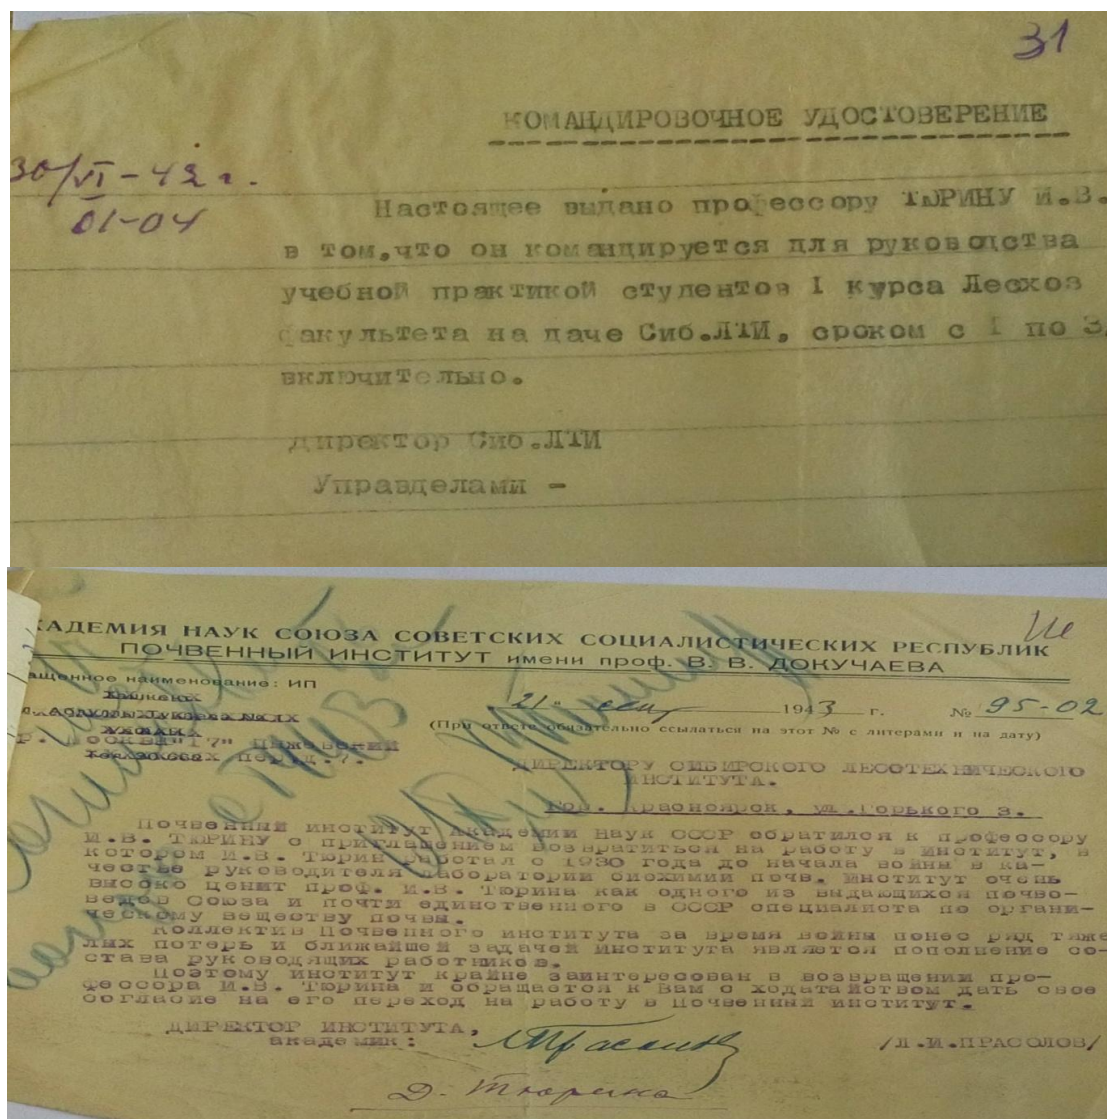 31
КОМАНДИРОВОЧНОЕ УДОСТОВЕРЕНИЕ
30/VI-42 г.
01-04
Настоящее выдано профессору ТЮРИНУ И.В.
в том,что он командируется для руководства
учебной практикой студентов I курса Лесхоз
факультета на даче Сиб.ЛТИ, сроком с I по 3
включительно.
Директор Сиб.ЛТИ
Управделами -
КАДЕМИЯ НАУК СОЮЗА СОВЕТСКИХ СОЦИАЛИСТИЧЕСКИХ РЕСПУБЛИК
ПОЧВЕННЫЙ ИНСТИТУТ имени проф. В. В. ДОКУЧАЕВА
ащенное наименование: ИП
"21" 1943 г. № 95-02
(При ответе обязательно ссылаться на этот № с литерами и на дату)
Москва "17" Пыжевский
ДИРЕКТОРУ СИБИРСКОГО ЛЕСОТЕХНИЧЕСКОГО
ИНСТИТУТА.
Гор. Красноярск, ул.Горького 3.
Почвенный институт Академии Наук СССР обратился к профессору
И.В. ТЮРИНУ с приглашением возвратиться на работу в институт, в
котором И.В. Тюрин работал с 1930 года до начала войны в ка-
честве руководителя лаборатории биохимии почв. Институт очень
высоко ценит проф. И.В. Тюрина как одного из выдающихся почво-
ведов Союза и почти единственного в СССР специалиста по органи-
ческому веществу почвы.
Коллектив Почвенного института за время войны понес ряд тяже
лых потерь и ближайшей задачей Института является пополнение со-
става руководящих работников.
Поэтому институт крайне заинтересован в возвращении про-
фессора И.В. Тюрина и обращается к Вам с ходатайством дать свое
согласие на его переход на работу в Почвенный институт.
ДИРЕКТОР ИНСТИТУТА,
академик: /Л.И.ПРАСОЛОВ/
Д. Тюрина